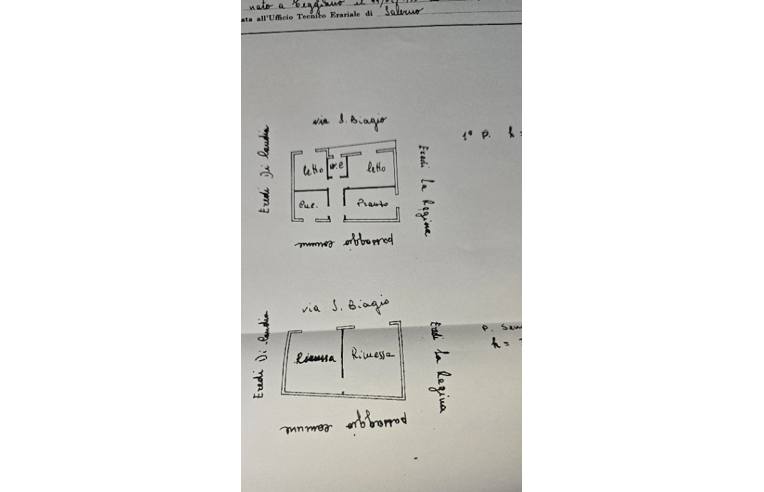 nato a Teggiano il
ata all'Ufficio Tecnico Erariale di Salerno
via S. Biagio
1° P. h =
Eredi Di Candia
letto
w.c
letto
Eredi La Regina
Cuc.
Pranzo
passaggio comune
via S. Biagio
Eredi Di Candia
Rimessa
Rimessa
Eredi La Regina
P. Sem
h =
passaggio comune